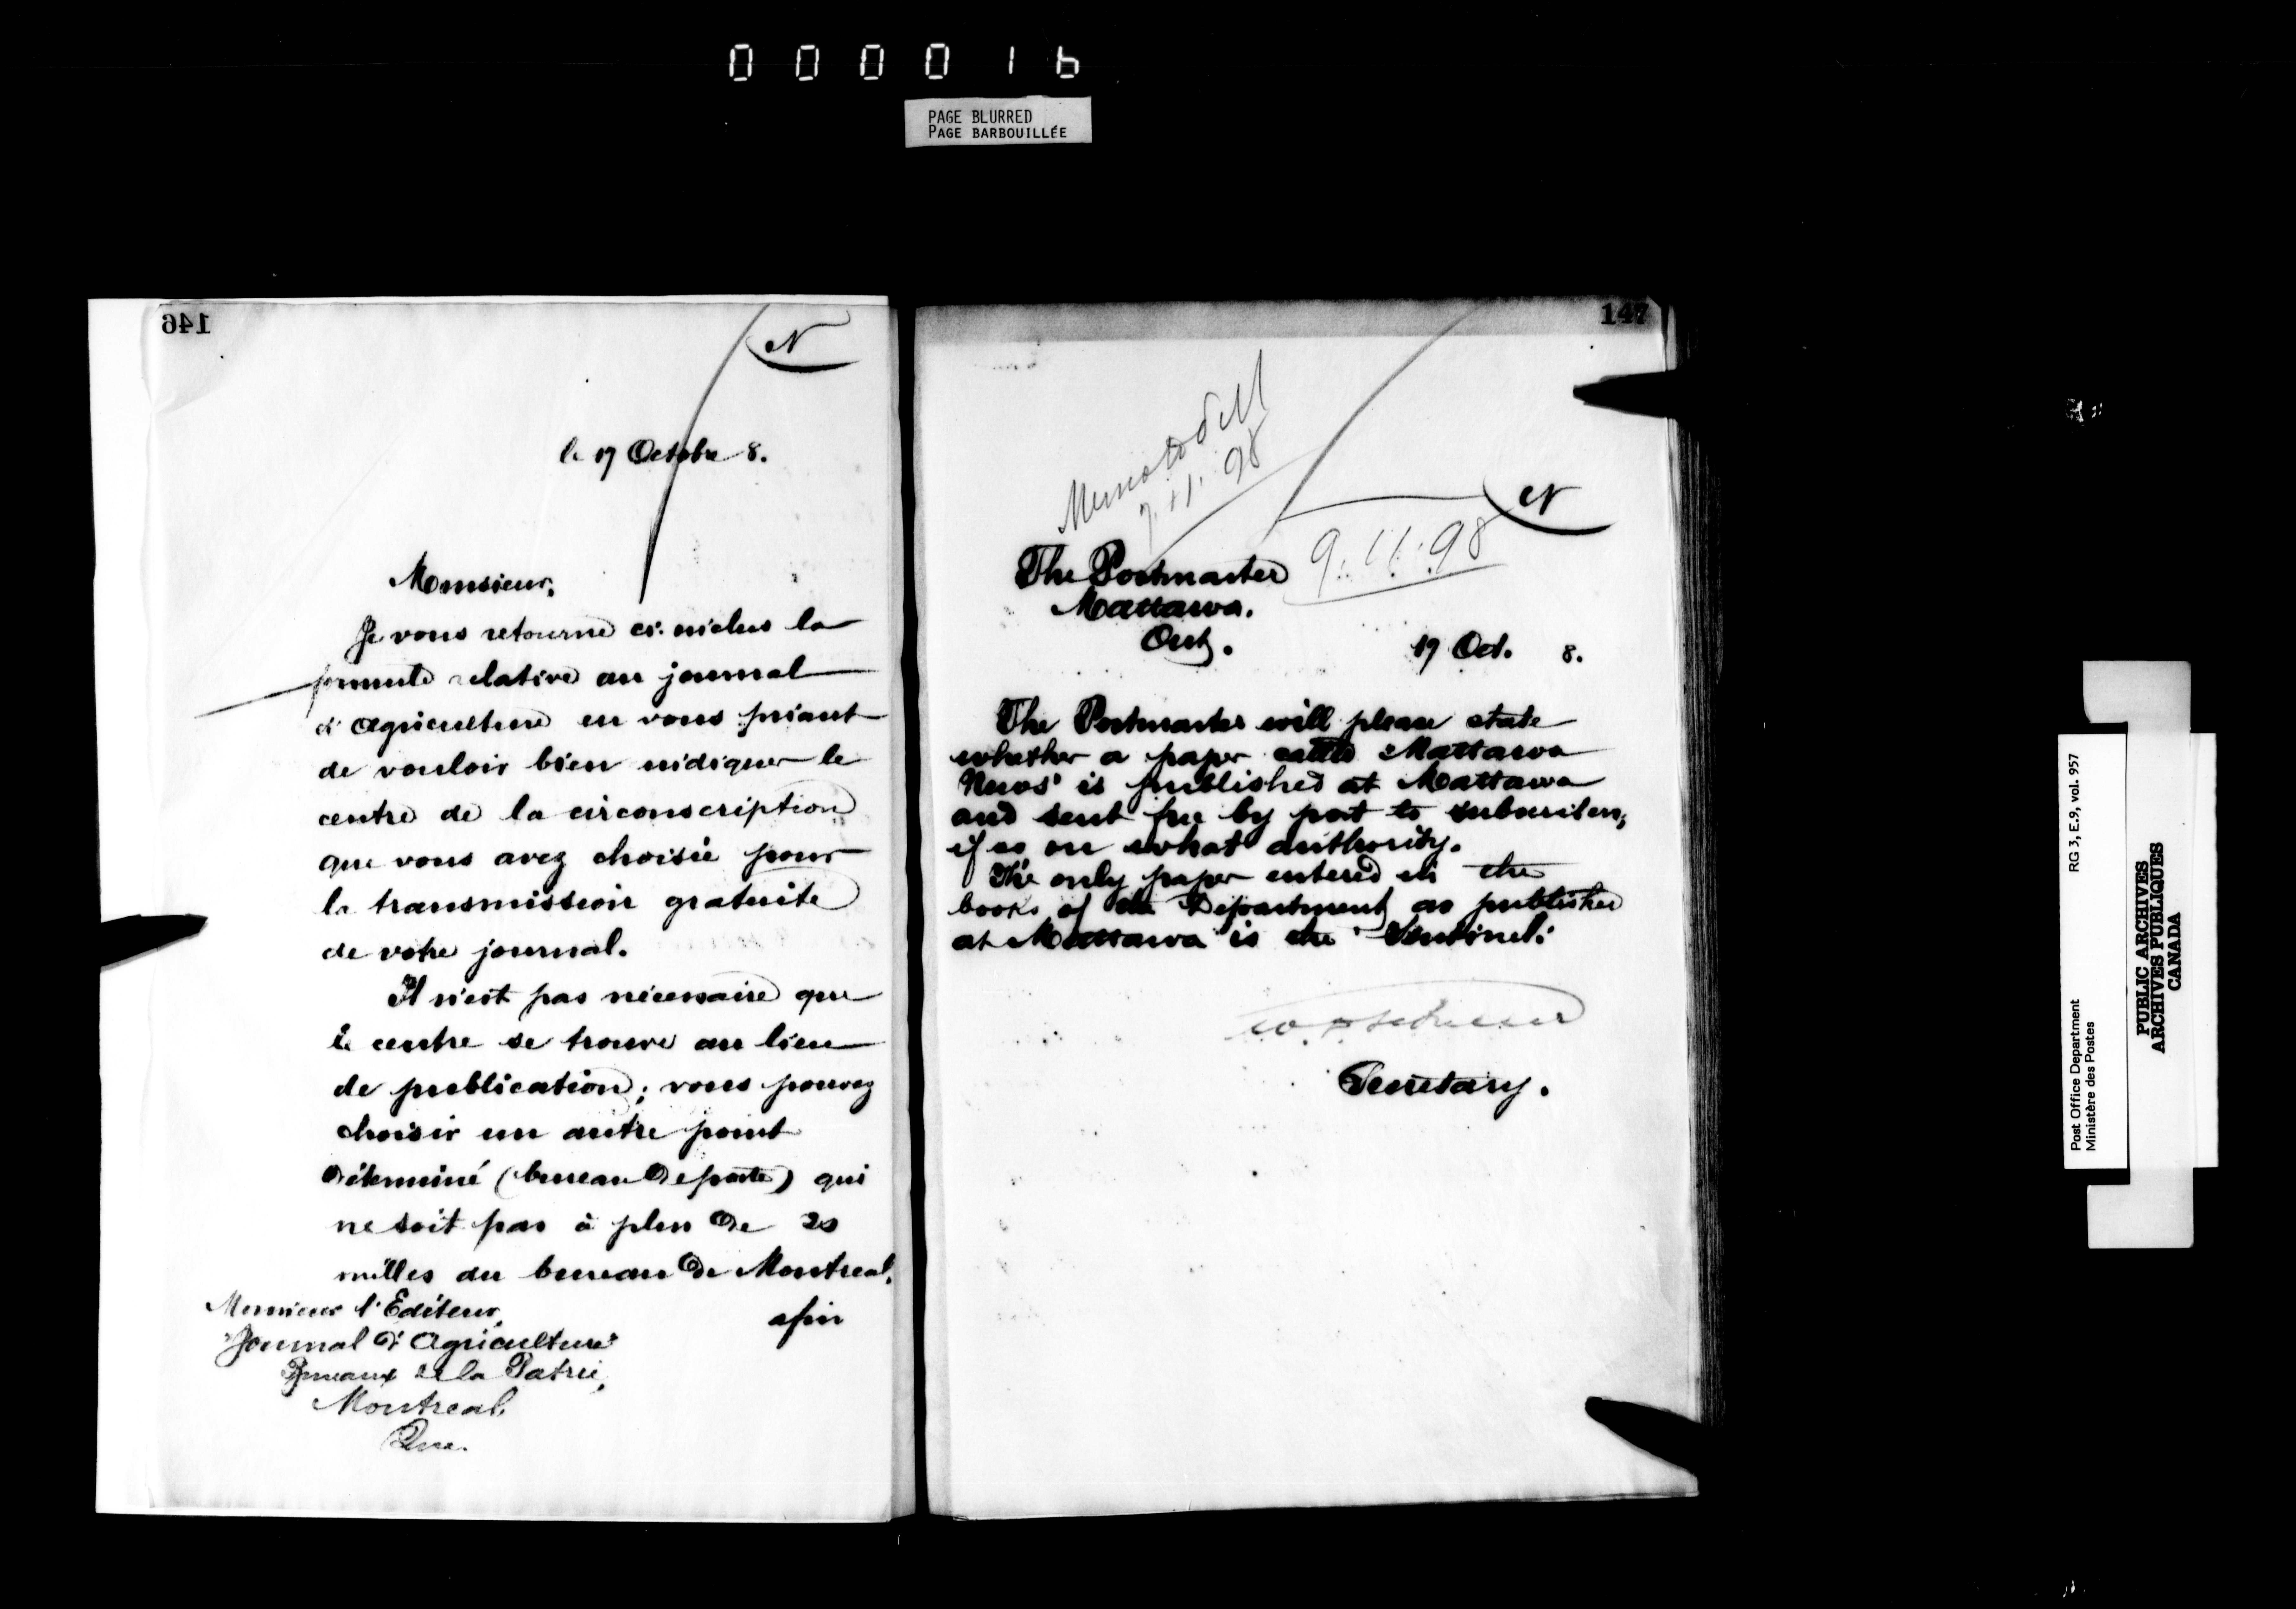 000016
PAGE BLURRED
PAGE BARBOUILLÉE
146
N
le 19 Octobre 8.
Monsieur,
Je vous retourne ci-inclus la
formule relative au journal
d'Agriculture en vous priant
de vouloir bien indiquer le
centre de la circonscription
que vous avez choisie pour
la transmission gratuite
de votre journal.
Il n'est pas nécessaire que
le centre se trouve au lieu
de publication; vous pouvez
choisir un autre point
déterminé (bureau de poste) qui
ne soit pas à plus de 20
milles du bureau de Montreal,
afin
Monsieur l'Editeur,
"Journal d'Agriculture"
Bureaux de la Patrie,
Montreal,
Que.
147
7.11.98
N
9.11.98
The Postmaster
Mattawa.
Ont.
19 Oct. 8.
The Postmaster will please state
whether a paper called "Mattawa
News" is published at Mattawa
and sent free by post to subscribers;
if so on what authority.
The only paper entered in the
books of the Department as published
at Mattawa is the "Sentinel."
Secretary.
RG 3, E.9, vol. 957
Post Office Department
Ministère des Postes
PUBLIC ARCHIVES
ARCHIVES PUBLIQUES
CANADA